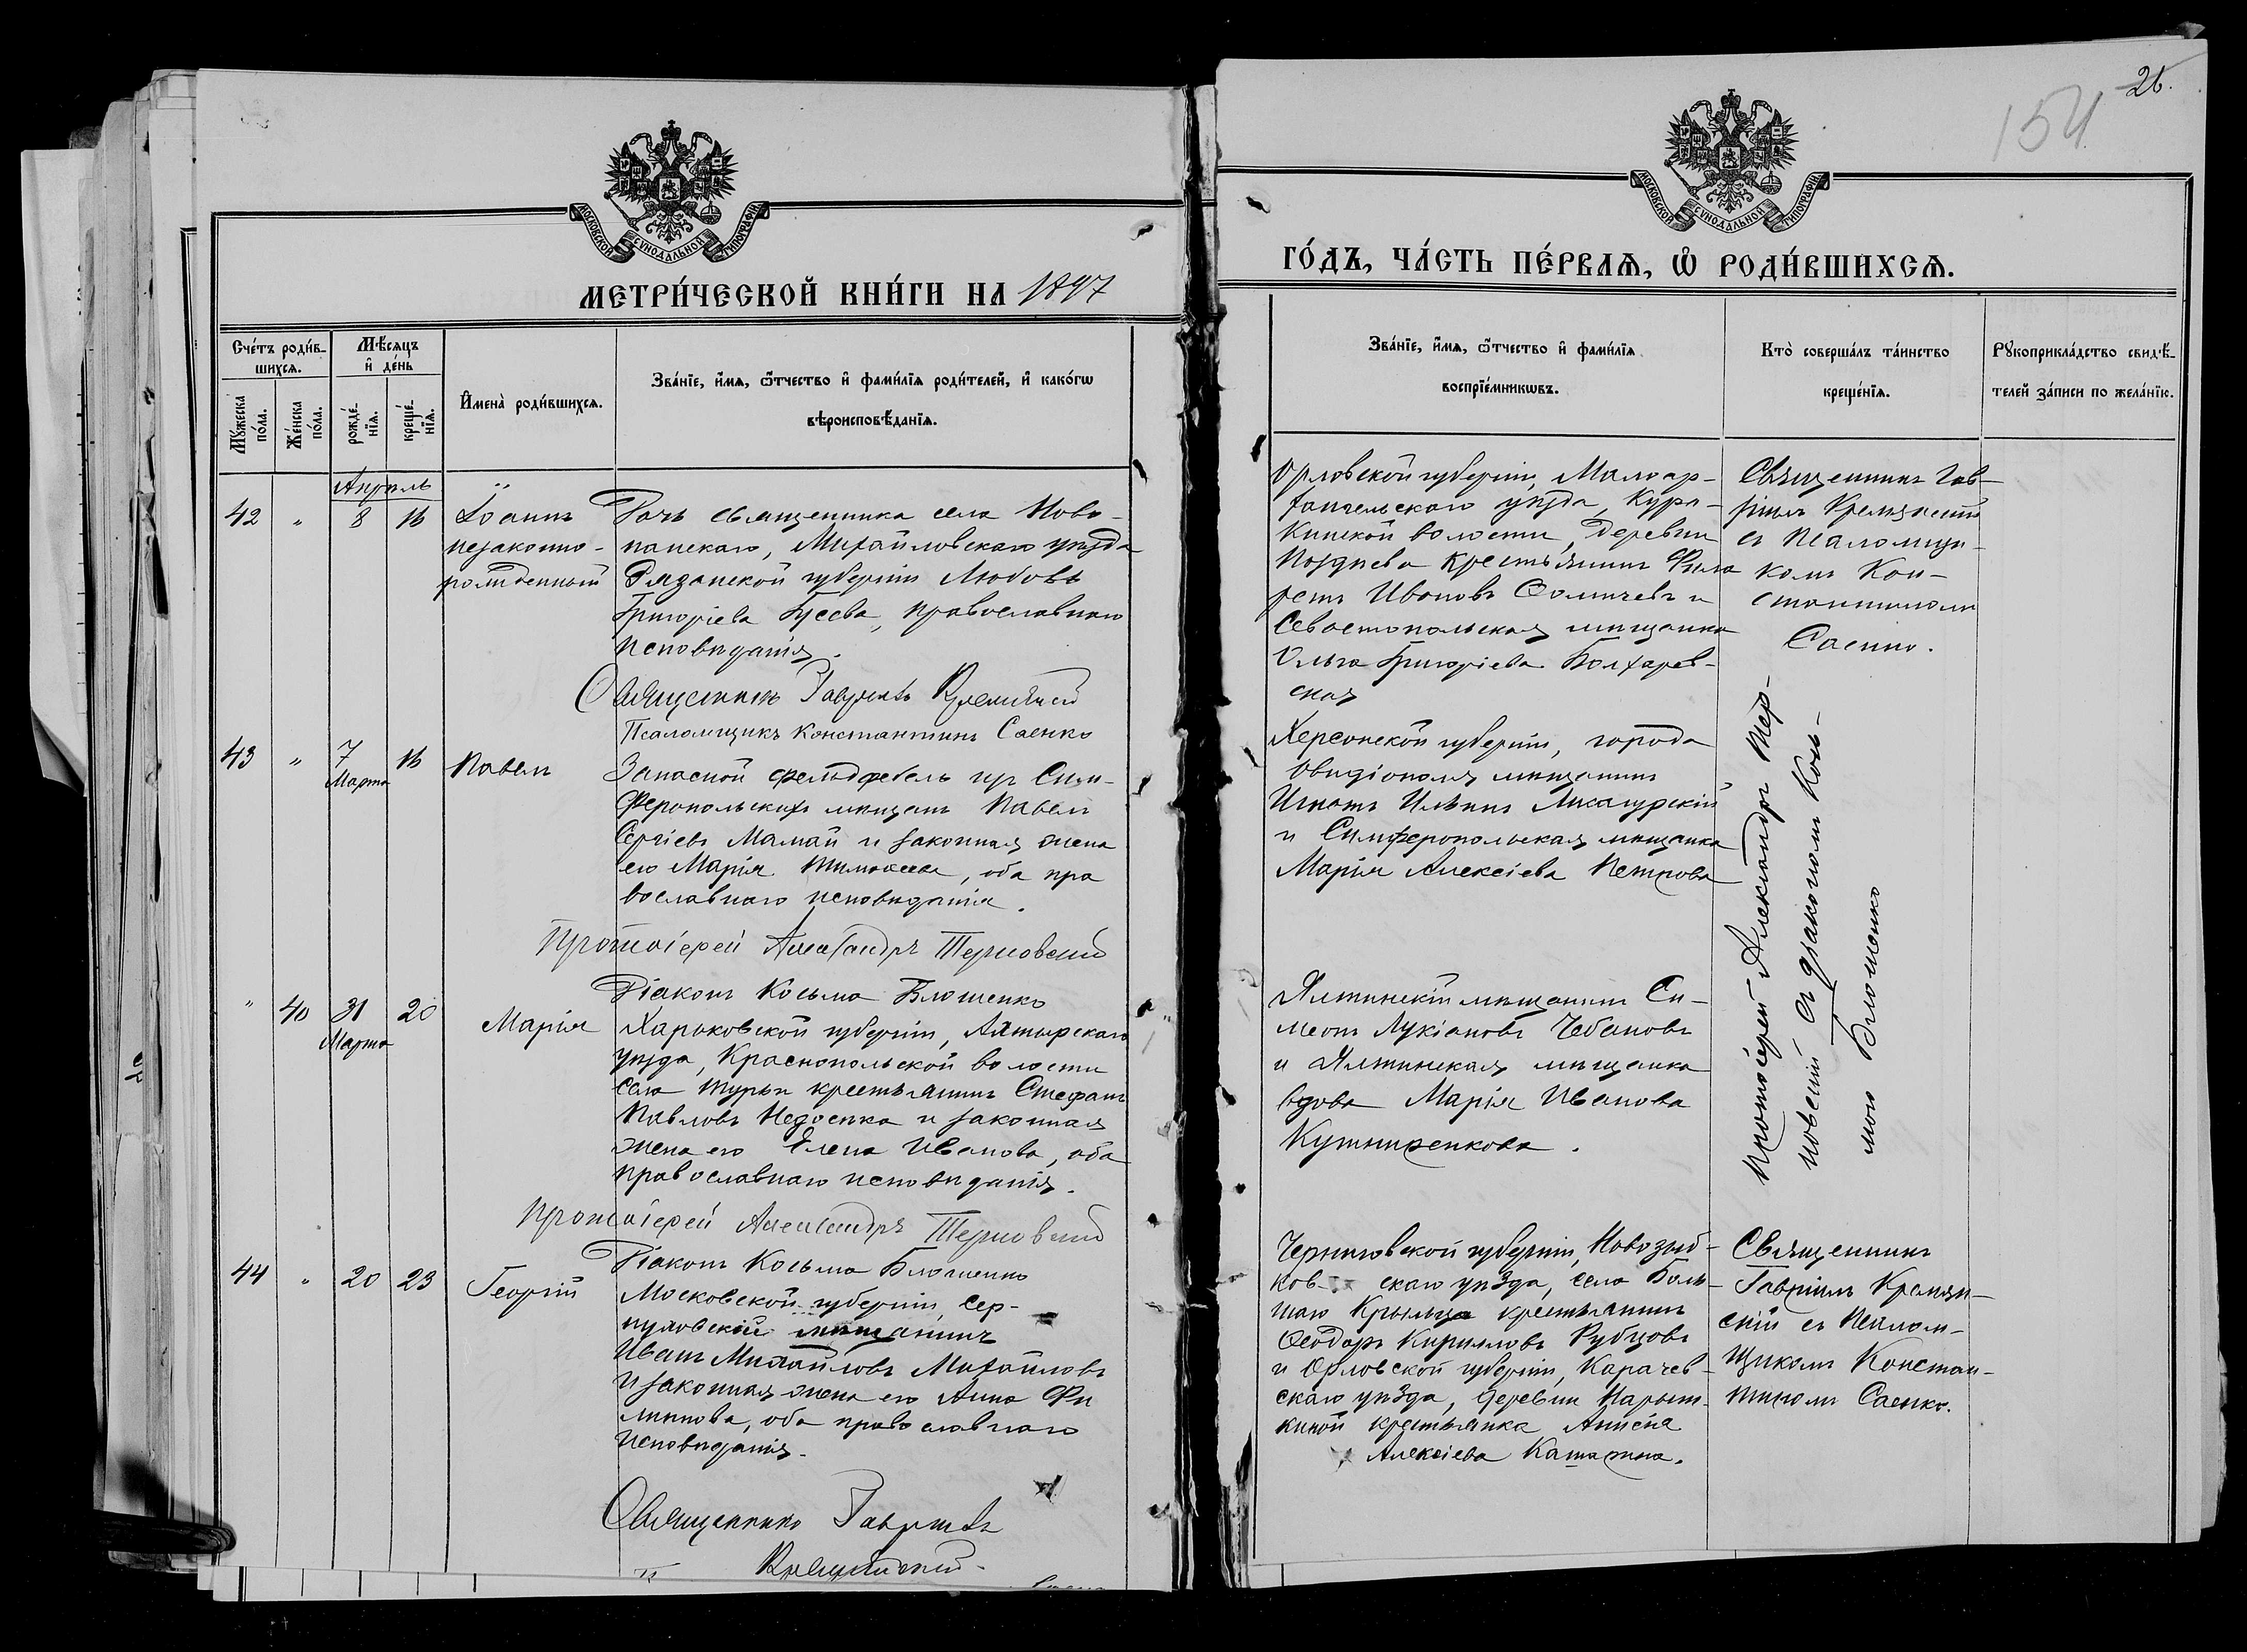 26.
154
МОСКОВСКОЙ СУНОДАЛЬНОЙ ТИПОГРАФІИ
МОСКОВСКОЙ СУНОДАЛЬНОЙ ТИПОГРАФІИ
МЕТРИ́ЧЕСКОЙ КНИ́ГИ НА 1897
ГО́ДЪ, ЧА́СТЬ ПЕ́РВАѦ, Ѡ РОДИ́ВШИХСѦ.
Сче́тъ роди́в-
шихсѧ.
Мꙋ́жеска по́ла.
Же́нска по́ла.
Мѣ́сѧцъ
и҆ де́нь
рожде́-
нїѧ.
креще́-
нїѧ.
И҆мена̀ роди́вшихсѧ.
Зва́нїе, и҆́мѧ, ѻ҆́тчество и҆ фами́лїѧ роди́телей, и҆ како́гѡ
вѣроисповѣ́данїѧ.
Зва́нїе, и҆́мѧ, ѻ҆́тчество и҆ фами́лїѧ
воспрїе́мникѡвъ.
Кто̀ соверша́лъ та́инство
креще́нїѧ.
Рꙋкоприкла́дство свидѣ́-
телей за́писи по жела́нїю.
Апрѣль
42 " 8 16
Іоаннъ
незаконно-
рожденный
Дочь священника села Ново-
панскаго, Михайловскаго уѣзда
Рязанской губерніи Любовь
Григоріева, православнаго
исповѣданія.
Священникъ Гавріилъ Кремянскій
Псаломщикъ Константинъ Саенко
Орловской губерніи, Малоар-
хангельскаго уѣзда, Кура-
кинской волости, деревни
Позднева крестьянинъ Фила
ретъ Ивановъ и
Севастопольская мѣщанка
Ольга Григоріева Болхарев-
ская
Священникъ Гав-
ріилъ Кремянскій
съ Псаломщи-
комъ Кон-
стантиномъ
Саенко.
43 " 7 16
Марта
Павелъ
Запасной фельдфебель изъ Сим-
феропольскихъ мѣщанъ Павелъ
Сергіевъ Мамай и законная жена
его Марія Тимоѳеева, оба пра
вославнаго исповѣданія.
Протоіерей Александръ Терновскій
Діаконъ Косьма Блошенко
Херсонской губерніи, города
Овидіополя мѣщанинъ
Игнатъ Ильинъ
и Симферопольская мѣщанка
Марія Алексіева Петрова
Протоіерей Александръ Тер-
новскій съ діакономъ Кось-
мою Блошенко
" 40 31 20
Марта
Марія
Харьковской губерніи, Ахтырскаго
уѣзда, Краснопольской волости
села Турьи крестьянинъ Стефанъ
Павловъ Недоенка и законная
жена его Елена Иванова, оба
православнаго исповѣданія.
Протоіерей Александръ Терновскій
Діаконъ Косьма Блошенко
Ялтинскій мѣщанинъ Си-
меонъ Лукіановъ Чебановъ
и Ялтинская мѣщанка
вдова Марія Иванова
44 " 20 23
Георгій
Московской губерніи, Сер-
пуховскій мѣщанинъ
Иванъ Михайловъ Михайловъ
и законная жена его Анна Фи
липпова, оба православнаго
исповѣданія.
Священникъ Гавріилъ
Кремянскій
Черниговской губерніи, Новозыб-
ковскаго уѣзда, села Боль-
шаго крестьянинъ
Ѳеодоръ Кирилловъ Рубцовъ
и Орловской губерніи, Карачев-
скаго уѣзда, деревни Нарыш-
киной крестьянка
Алексіева
Священникъ
Гавріилъ Кремян-
скій съ Псалом-
щикомъ Констан-
тиномъ Саенко.